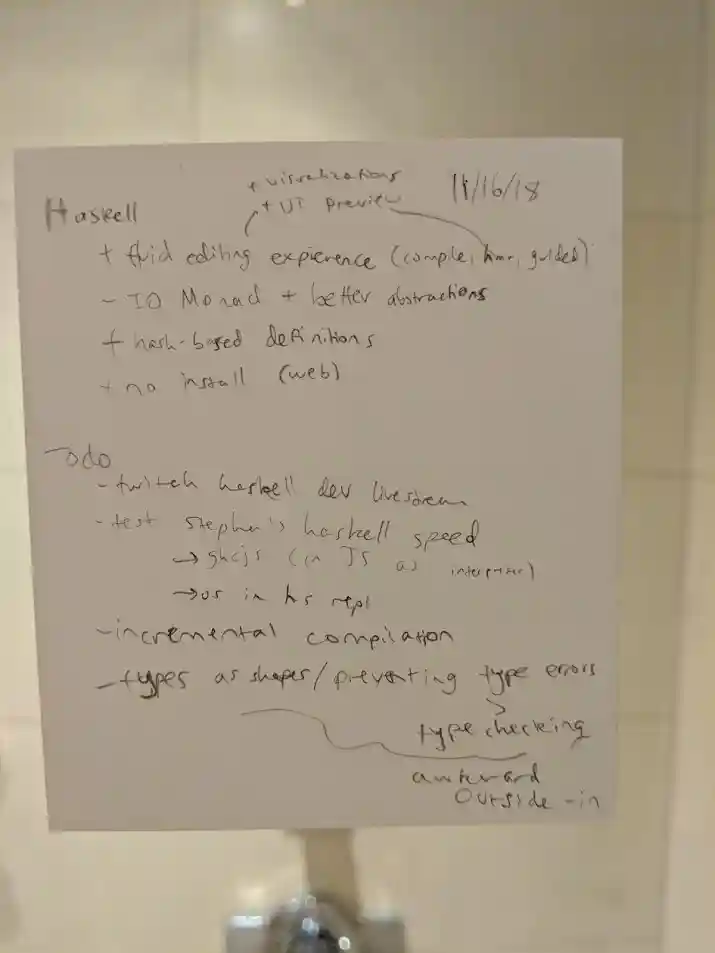 + visualizations
+ UI preview
11/16/18
Haskell
+ fluid editing expierence (comple, hmr, guided)
- IO Monad + better abstractions
+ hash-based definitions
+ no install (web)
Todo
- twitch haskell dev livestream
- test stephen's haskell speed
→ ghcjs (in JS as interpreter)
→ vs in hs repl
- incremental compilation
- types as shapes/preventing type errors
> type checking
awkward
outside-in